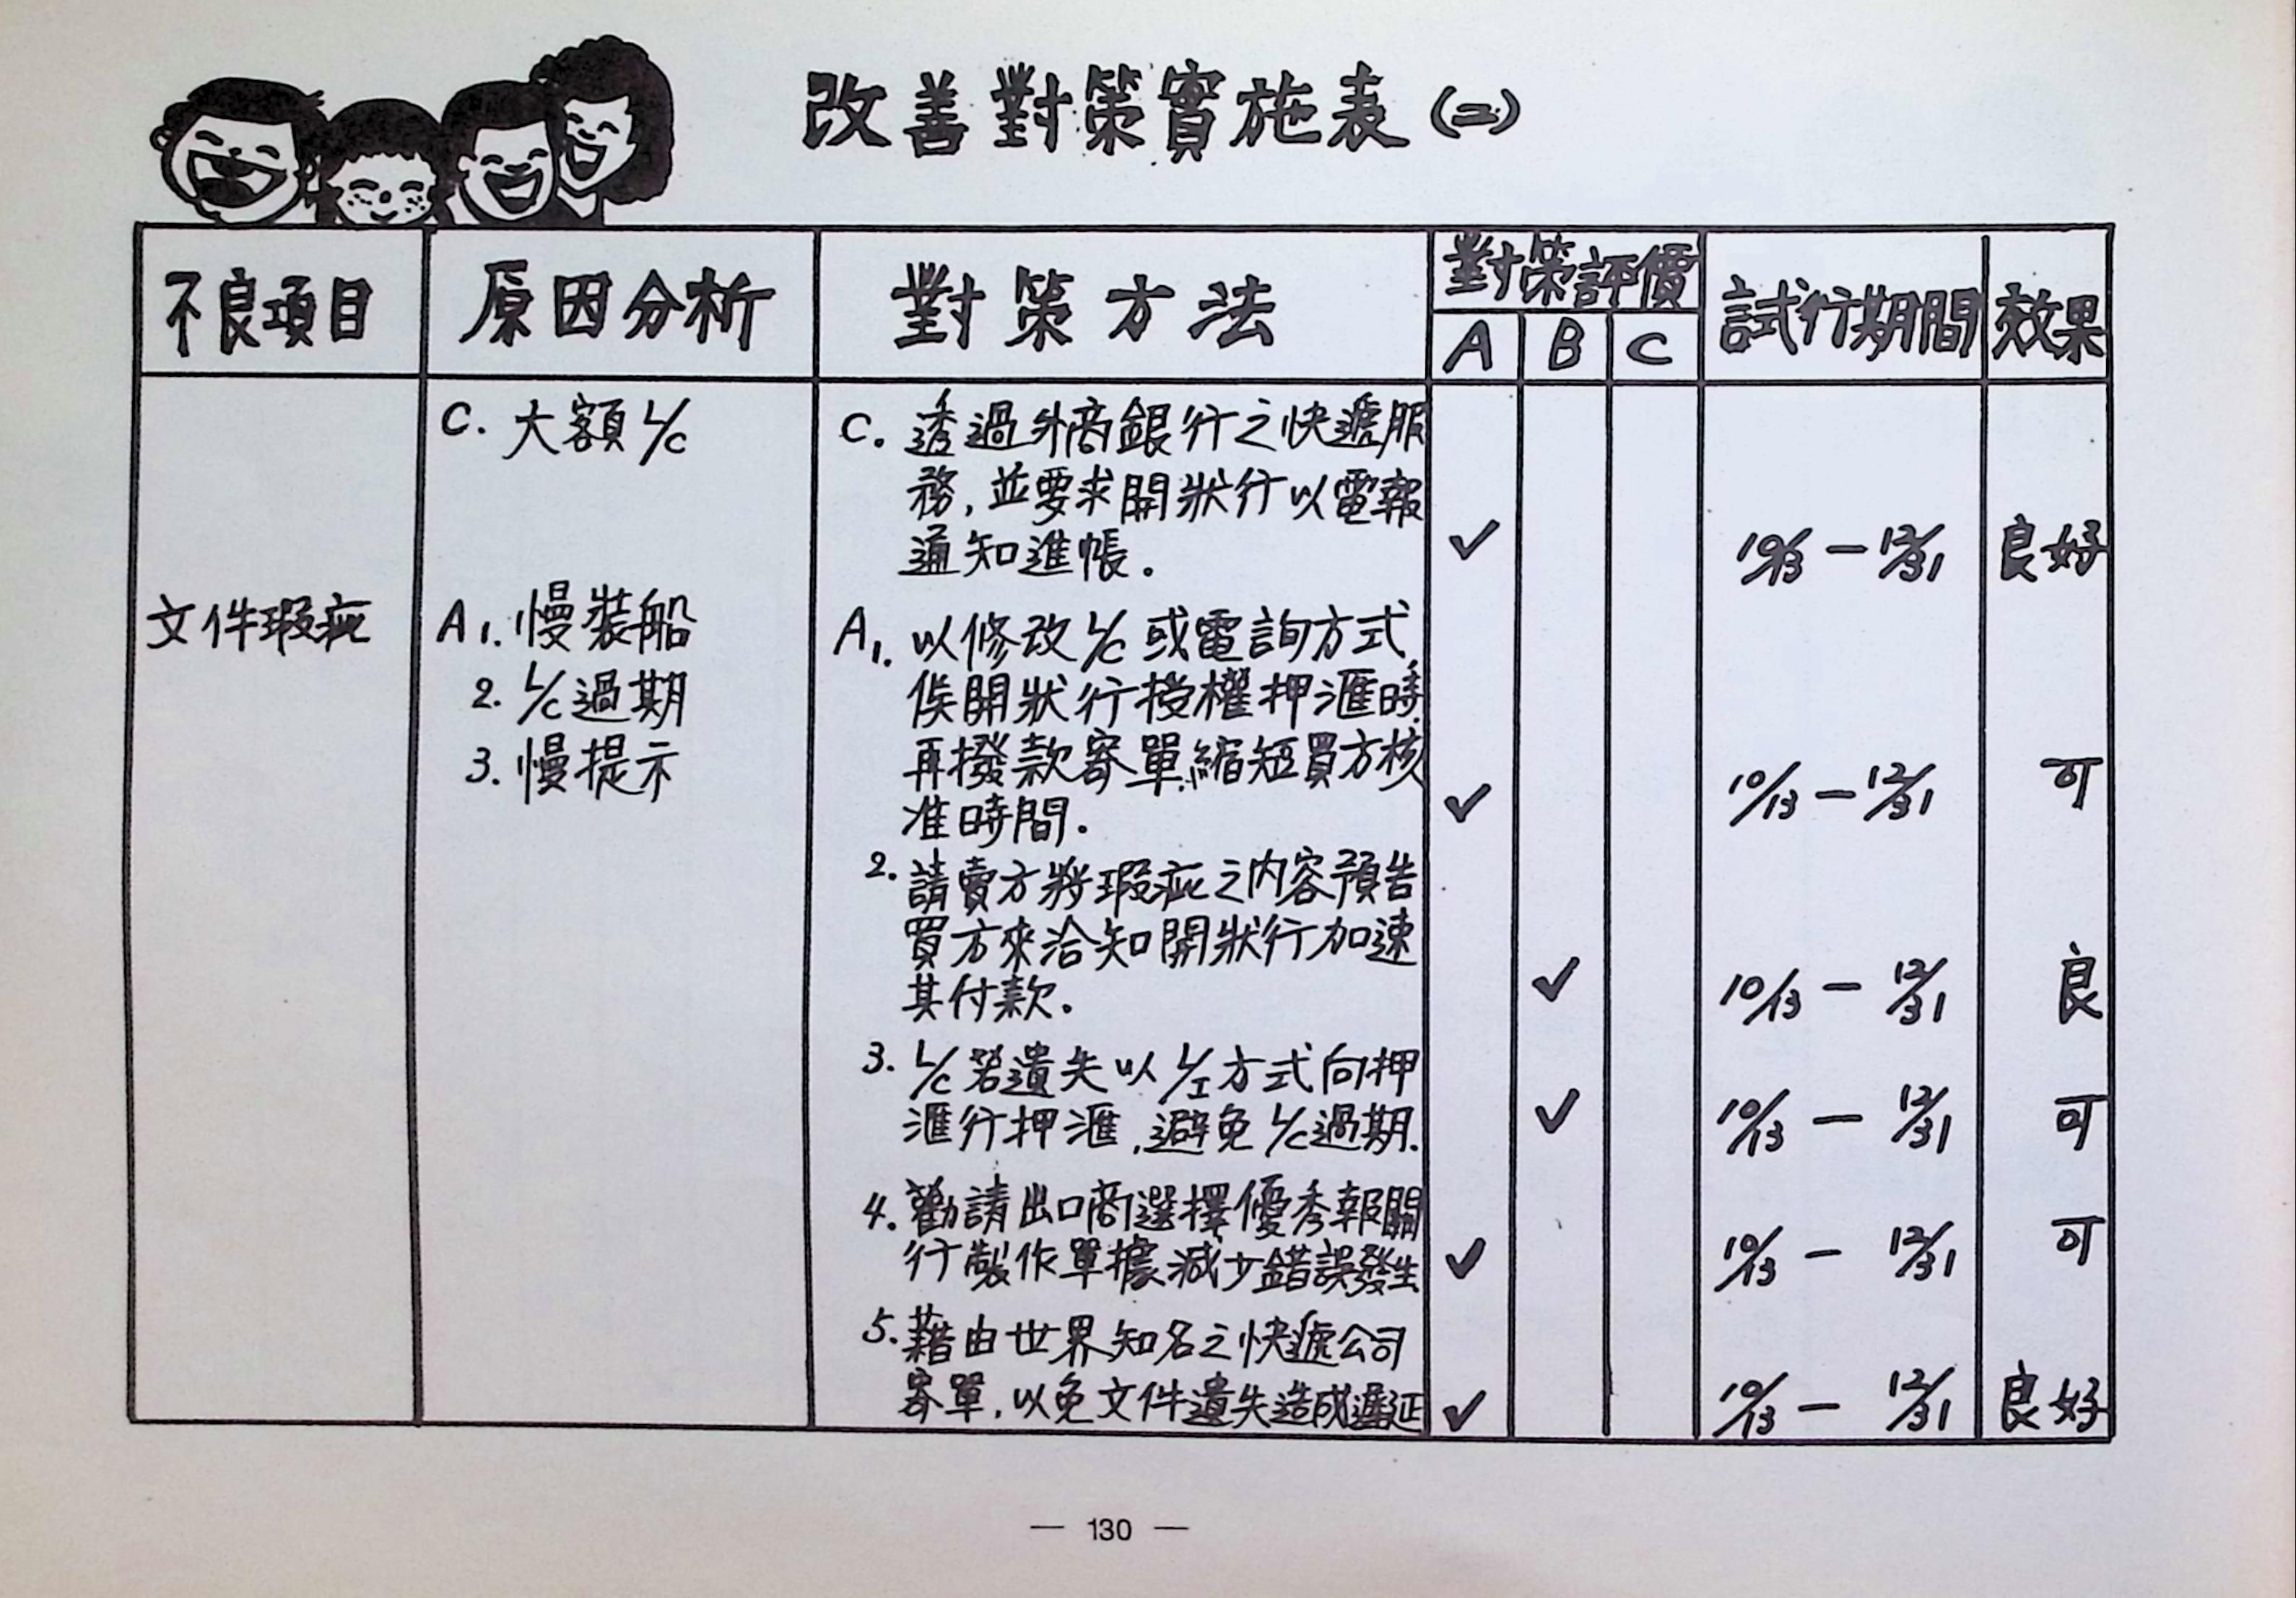 改善對策實施表(二)
不良項目 原因分析 對策方法 對策評價 試行期間 效果
A B C
C. 大額L/C
C. 透過外商銀行之快遞服
務,並要求開狀行以電報
通知進帳。
✓ 10/13 — 12/31 良好
文件瑕疵
A1. 慢裝船
2. L/C過期
3. 慢提示
A1. 以修改L/C或電詢方式,
俟開狀行授權押滙時
再撥款寄單,縮短買方核
准時間.
✓ 10/13 — 12/31 可
2. 請賣方將瑕疵之內容預告
買方來洽知開狀行加速
其付款.
✓ 10/13 — 12/31 良
3. L/C若遺失以L/I方式向押
滙行押滙,避免L/C過期.
✓ 10/13 — 12/31 可
4. 勸請出口商選擇優秀報關
行製作單據減少錯誤發生
✓ 10/13 — 12/31 可
5. 藉由世界知名之快遞公司
寄單,以免文件遺失造成遲延
✓ 10/13 — 12/31 良好
— 130 —